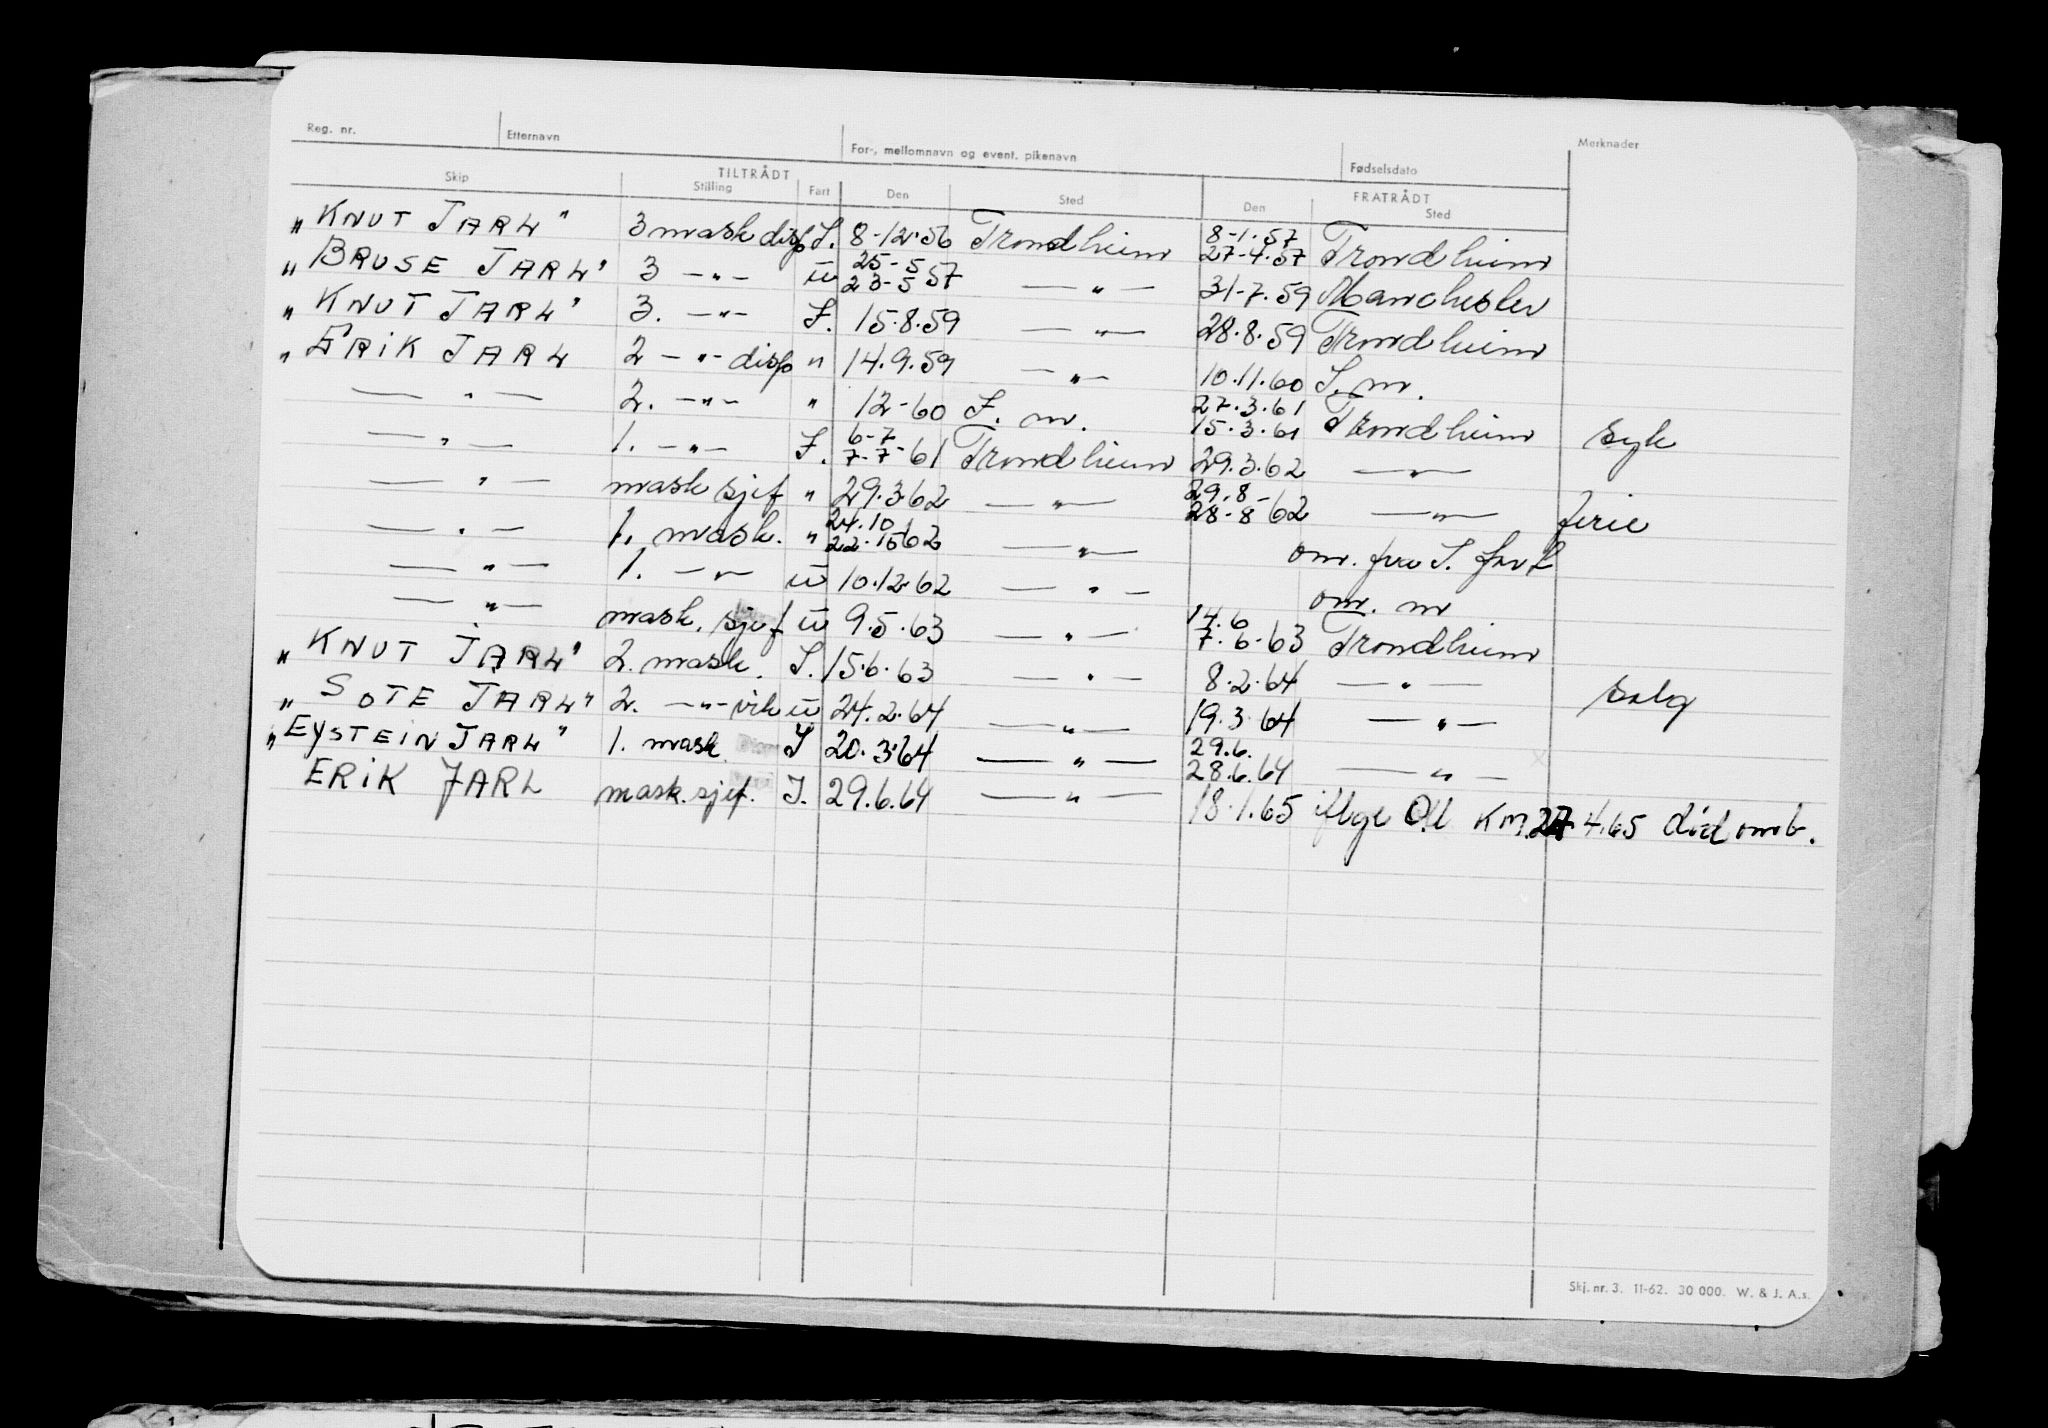 Reg. nr. Etternavn For-, mellomnavn og event. pikenavn Fødselsdato Merknader
TILTRÅDT FRATRÅDT
Skip Stilling Fart Den Sted Den Sted
"KNUT JARL" 3 mask disp I. 8-12-56 Trondheim 8-1-57 27-4-57 Trondheim
"BRUSE JARL" 3 -"- u 25-5 23-5 57 -"- 31-7-59 Manchester
"KNUT JARL" 3. -"- I. 15.8.59 -"- 28.8.59 Trondheim
"ERIK JARL 2 -"- disp " 14.9.59 -"- 10.11.60 I. m.
-"- 2. -"- " 12-60 I. m. 27.3.61 15.3.61 Trondheim syk
-"- 1. -"- I. 6-7 7-7-61 Trondheim 29.3.62 -"-
-"- mask sjef " 29.3.62 -"- 29.8- 28-8-62 -"- ferie
-"- 1. mask. " 24.10 22.10 62 -"- om. fra I. fart
-"- 1. -"- u 10.12.62 -"- om. m
-"- mask. sjef u 9.5.63 -"- 14.6 7.6-63 Trondheim
"KNUT JARL" 2. mask. I. 15.6.63 -"- 8.2.64 -"- salg
"SOTE JARL" 2. -"- vik u 24.2.64 -"- 19.3.64 -"-
"EYSTEIN JARL" 1. mask I 20.3.64 -"- 29.6. 28.6.64 -"-
ERIK JARL mask.sjef. I. 29.6.64 -"- 18.1.65 iflge KM. 27.4.65 död omb.
Skj. nr. 3. 11-62. 30 000. W. & J. A.s.